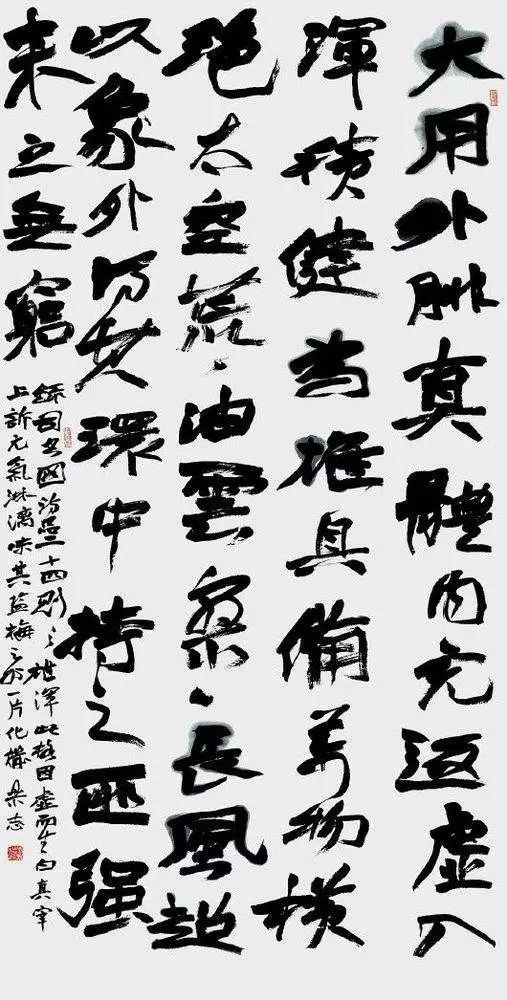 大用外腓真體內充返虛入
渾積健為雄具備萬物橫
絕太空荒、油雲寥、長風超
以象外得其環中持之匪強
来之無窮
司空圖詩品二十四則之雄渾此格因虛而生白真宰
上訴元氣淋漓味其盐梅之外一片化機